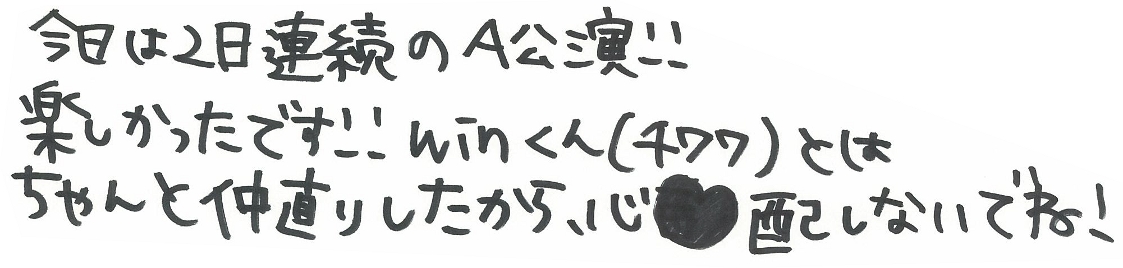 今日は2日連続のA公演!!
楽しかったです!! winくん(チワワ)とは
ちゃんと仲直りしたから、心♥配しないでね!